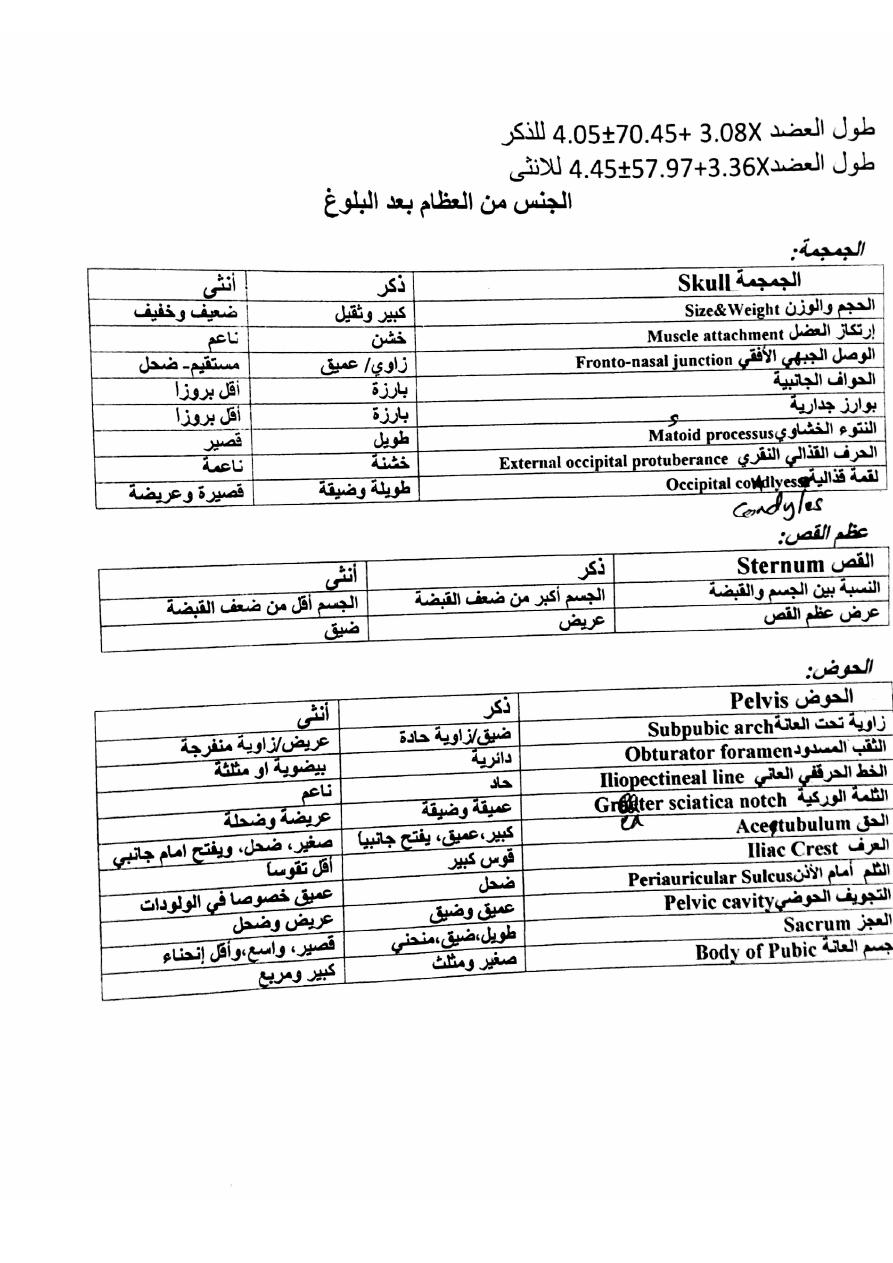 طول العضد 3.08X +70.45±4.05 للذكر
طول العضد3.36X+57.97±4.45 للانثى
الجنس من العظام بعد البلوغ
الجمجمة:
الجمجمة Skull ذكر أنثى
الحجم والوزن Size&Weight كبير وثقيل ضعيف وخفيف
إرتكاز العضل Muscle attachment خشن ناعم
الوصل الجبهي الأفقي Fronto-nasal junction زاوي/ عميق مستقيم- ضحل
الحواف الجانبية بارزة أقل بروزا
بوارز جدارية بارزة أقل بروزا
s
النتوء الخشاوي Matoid processus طويل قصير
الحرف القذالي النقري External occipital protuberance خشنة ناعمة
لقمة قذالية Occipital طويلة وضيقة قصيرة وعريضة
condyles
عظم القص:
القص Sternum ذكر أنثى
النسبة بين الجسم والقبضة الجسم أكبر من ضعف القبضة الجسم أقل من ضعف القبضة
عرض عظم القص عريض ضيق
الحوض:
الحوض Pelvis ذكر أنثى
زاوية تحت العانة Subpubic arch ضيق/زاوية حادة عريض/زاوية منفرجة
الثقب المسدود Obturator foramen دائرية بيضوية او مثلثة
الخط الحرقفي العاني Iliopectineal line حاد ناعم
الثلمة الوركية sciatica notch عميقة وضيقة عريضة وضحلة
ea
الحق Acetubulum كبير،عميق، يفتح جانبيا صغير، ضحل، ويفتح امام جانبي
العرف Iliac Crest قوس كبير أقل تقوسا
الثلم أمام الأذن Periauricular Sulcus ضحل عميق خصوصا في الولودات
التجويف الحوضي Pelvic cavity عميق وضيق عريض وضحل
العجز Sacrum طويل،ضيق،منحني قصير، واسع،وأقل إنحناء
جسم العانة Body of Pubic صغير ومثلث كبير ومربع